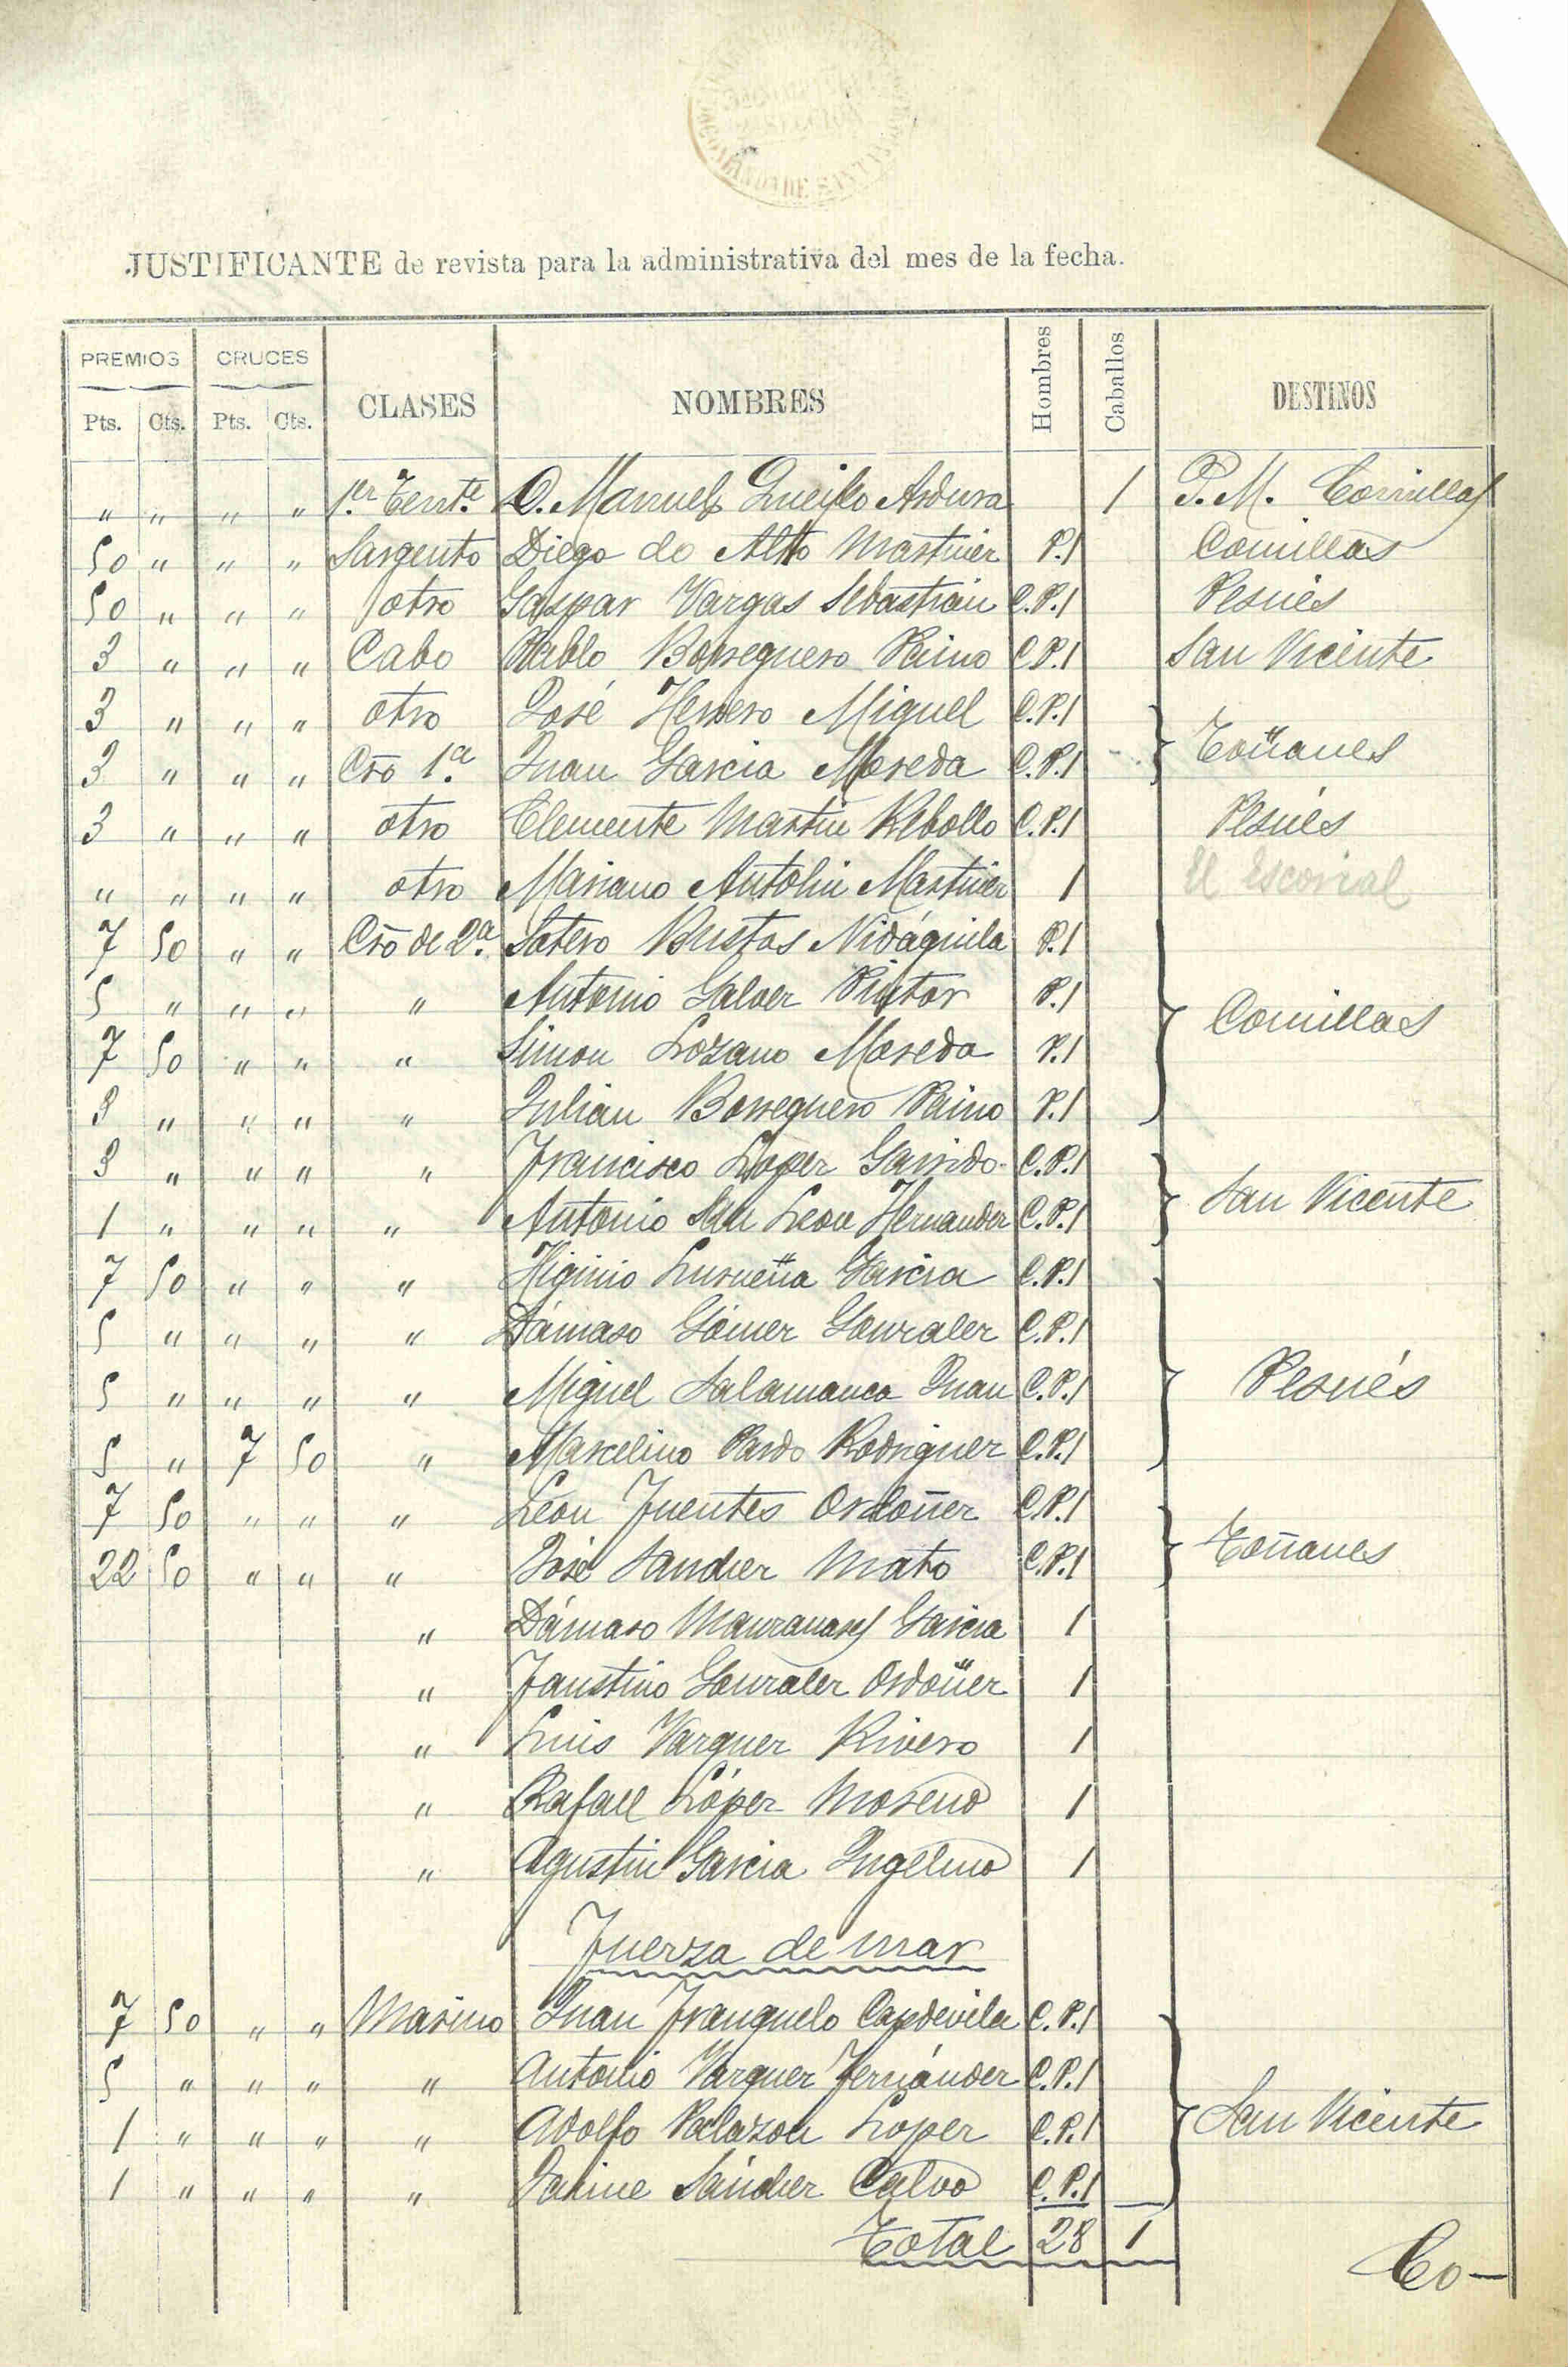 JUSTIFICANTE de revista para la administrativa del mes de la fecha.
PREMIOS CRUCES CLASES NOMBRES Hombres Caballos DESTINOS
Pts. Cts. Pts. Cts.
" " " " 1.er Tente. D. Manuel Ardura 1 P. M. Comillas
50 " " " Sargento Diego de Alto Martinez P.1 Comillas
50 " " " otro Gaspar Vargas Sebastián C.P.1 Pesués
3 " " " Cabo Pablo Borreguero Paino C.P.1 San Vicente
3 " " " otro José Herrero Miguel C.P.1
3 " " " Cro 1.a Juan Garcia Moreda C.P.1 } Toñanes
3 " " " otro Clemente Martin Rebollo C.P.1 Pesués
" " " " otro Mariano Antolin Martinez 1 El Escorial
7 50 " " Cro de 2.a Sotero Bustos Nidáguila P.1
5 " " " " Antonio Galvez Pintor P.1 } Comillas
7 50 " " " Simon Lozano Moreda P.1
3 " " " " Julian Borreguero Paino P.1
3 " " " " Francisco Lopez Garrido C.P.1
1 " " " " Antonio San Leon Hernandez C.P.1 } San Vicente
7 50 " " " Higinio Lurueña Garcia C.P.1
5 " " " " Dámaso Gómez Gonzalez C.P.1
5 " " " " Miguel Salamanca Juan C.P.1 } Pesués
5 " 7 50 " Marcelino Pardo Rodriguez C.P.1
7 50 " " " Leon Fuentes Ordoñez C.P.1
22 50 " " " José Sanchez Mato C.P.1 } Toñanes
" Dámaso Manzanares Garcia 1
" Faustino Gonzalez Ordoñez 1
" Luis Vazquez Rivero 1
" Rafael López Moreno 1
" Agustin Garcia Ingelmo 1
Fuerza de mar
7 50 " " Marino Juan Franquelo Capdevila C.P.1
5 " " " " Antonio Vazquez Fernández C.P.1
1 " " " " Adolfo Palazon Lopez C.P.1 } San Vicente
1 " " " " Jaime Sánchez Calvo C.P.1
Total 28 1
Co-